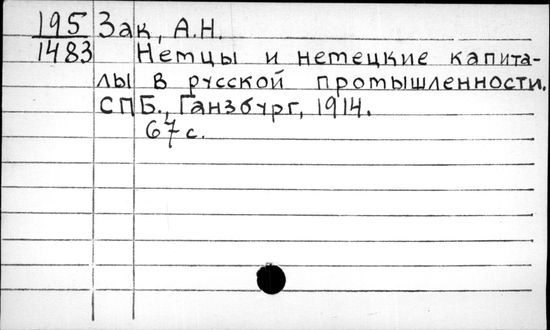 195 Зак, А.Н.
1483 Немцы и немецкие капита-
лы в русской промышленности.
СПБ., Ганзбург, 1914.
67 с.